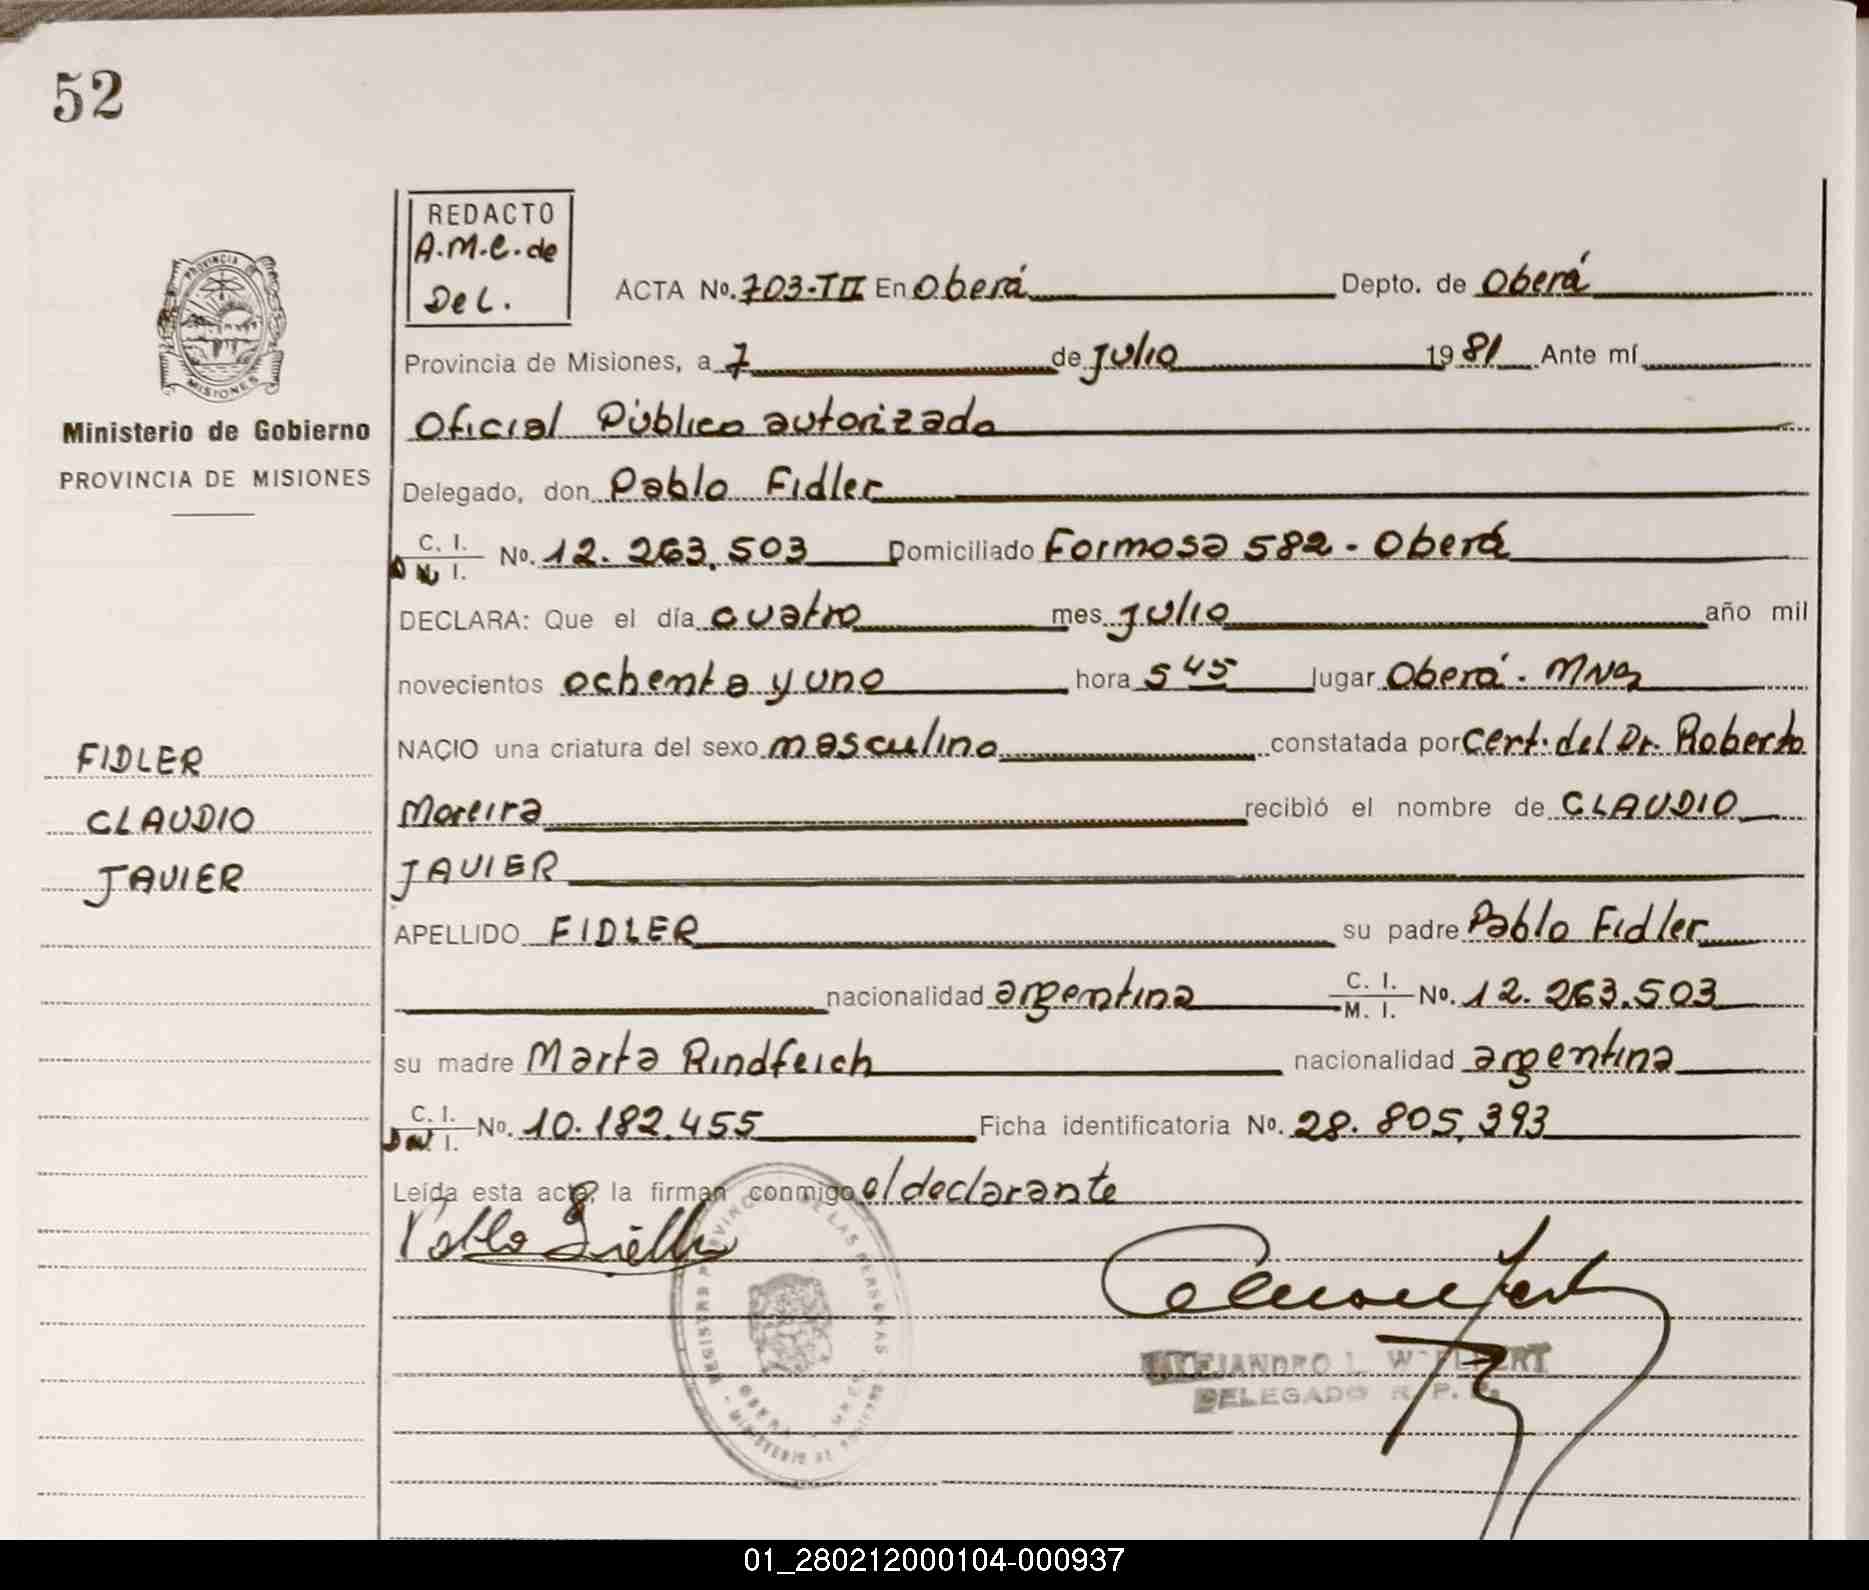 52
REDACTO
A.M.C. de
Del.
PROVINCIA DE
MISIONES
Ministerio de Gobierno
PROVINCIA DE MISIONES
FIDLER
CLAUDIO
JAVIER
ACTA No. 703-TII En Oberá Depto. de Oberá
Provincia de Misiones, a 7 de Julio 1981 Ante mí
Oficial Público autorizado
Delegado, don Pablo Fidler
C. I.
D N I. No. 12.263.503 Domiciliado Formosa 582 - Oberá
DECLARA: Que el día cuatro mes julio año mil
novecientos ochenta y uno hora 5 45 lugar Oberá - Mnes
NACIO una criatura del sexo masculino constatada por cert. del Dr. Roberto
Moreira recibió el nombre de CLAUDIO
JAVIER
APELLIDO FIDLER su padre Pablo Fidler
nacionalidad argentina C. I. M. I. No. 12.263.503
su madre Marta Rindfeich nacionalidad argentina
C. I.
DN I. No. 10.182.455 Ficha identificatoria No. 28.805.393
Leída esta acta, la firman conmigo el declarante
Pablo Fidler
ALEJANDRO L.
DELEGADO R. P.
01_280212000104-000937